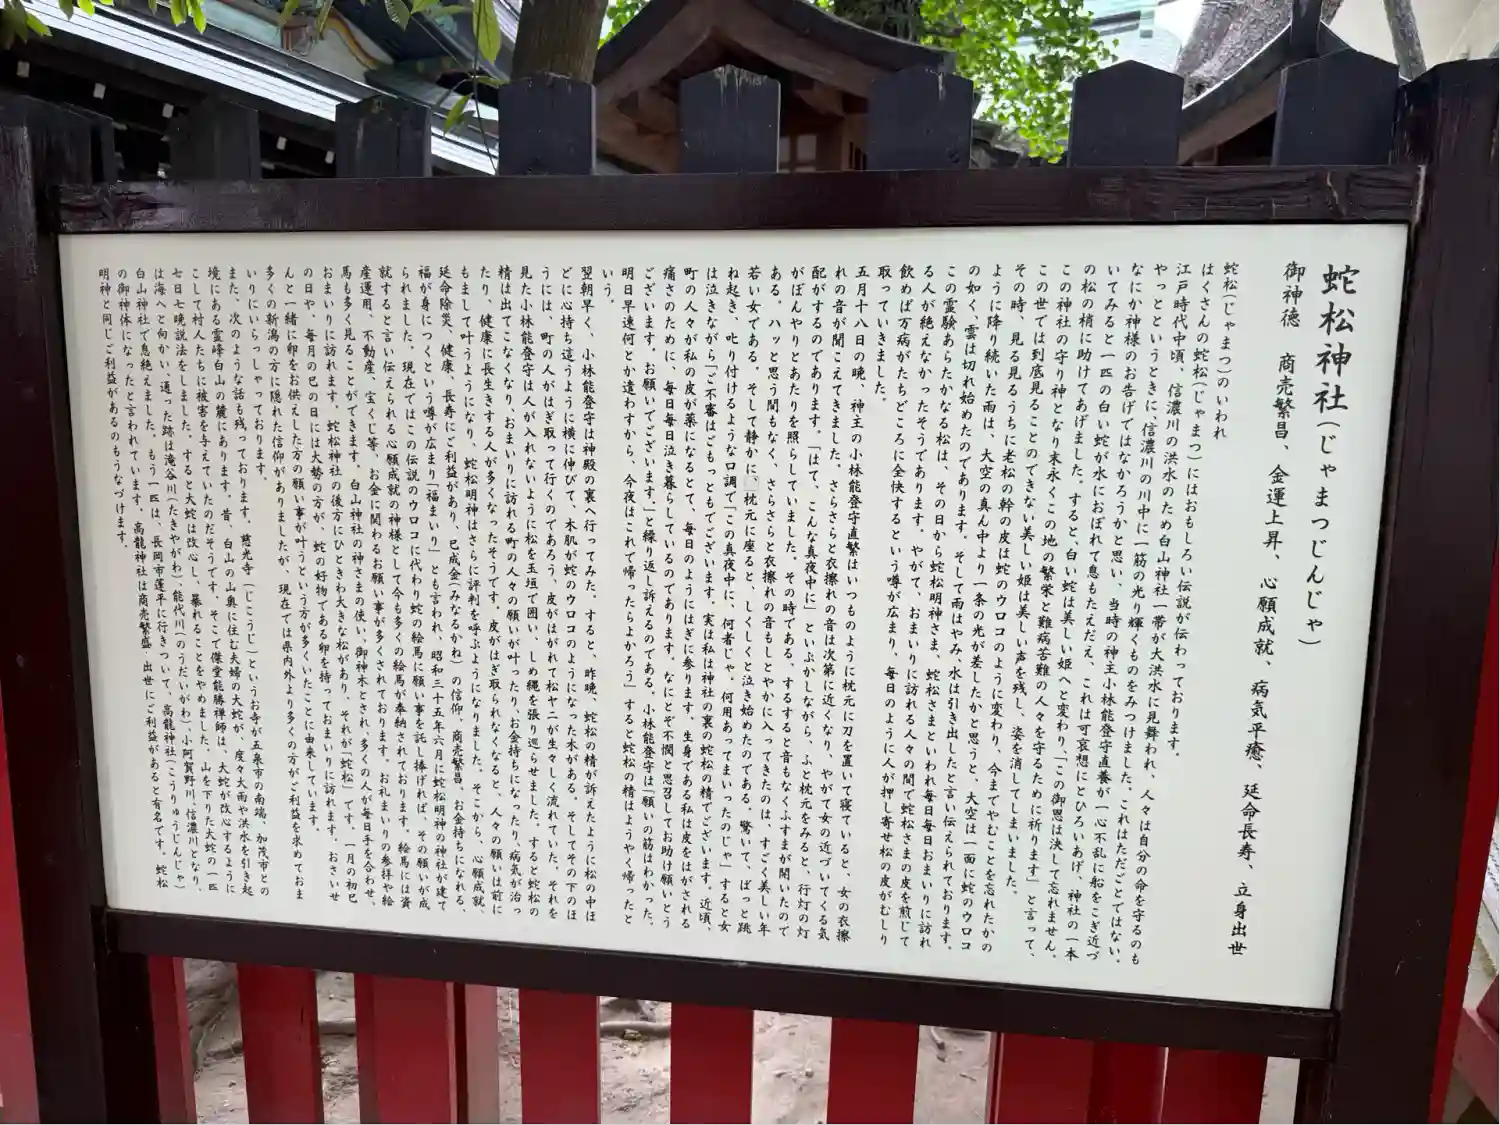 蛇松神社(じゃまつじんじゃ)
御神徳　商売繁昌、金運上昇、心願成就、病気平癒、延命長寿、立身出世
蛇松(じゃまつ)のいわれ
はくさんの蛇松(じゃまつ)にはおもしろい伝説が伝わっております。
江戸時代中頃、信濃川の洪水のため白山神社一帯が大洪水に見舞われ、人々は自分の命を守るのも
やっとというときに、信濃川の川中に一筋の光り輝くものをみつけました。これはただごとではない。
なにか神様のお告げではなかろうかと思い、当時の神主小林能登守直養が一心不乱に船をこぎ近づ
いてみると一匹の白い蛇が水におぼれて息もたえだえ、これは可哀想にとひろいあげ、神社の一本
の松の梢に助けてあげました。すると、白い蛇は美しい姫へと変わり、「この御恩は決して忘れません。
この神社の守り神となり末永くこの地の繁栄と難病苦難の人々を守るために祈ります」と言って、
この世では到底見ることのできない美しい姫は美しい声を残し、姿を消してしまいました。
その時、見る見るうちに老松の幹の皮は蛇のウロコのように変わり、今までやむことを忘れたかの
ように降り続いた雨は、大空の真ん中より一条の光が差したかと思うと、大空は一面に蛇のウロコ
の如く、雲は切れ始めたのであります。そして雨はやみ、水は引き出したと言い伝えられております。
この霊験あらたかなる松は、その日から蛇松明神さま、蛇松さまといわれ毎日毎日おまいりに訪れ
る人が絶えなかったそうであります。やがて、おまいりに訪れる人々の間で蛇松さまの皮を煎じて
飲めば万病がたちどころに全快するという噂が広まり、毎日のように人が押し寄せ松の皮がむしり
取っていきました。
五月十八日の晩、神主の小林能登守直繁はいつものように枕元に刀を置いて寝ていると、女の衣擦
れの音が聞こえてきました。さらさらと衣擦れの音は次第に近くなり、やがて女の近づいてくる気
配がするのであります。「はて、こんな真夜中に」といぶかしながら、ふと枕元をみると、行灯の灯
がぼんやりとあたりを照らしていました。その時である。するすると音もなくふすまが開いたので
ある。ハッと思う間もなく、さらさらと衣擦れの音もしとやかに入ってきたのは、すごく美しい年
若い女である。そして静かに、枕元に座ると、しくしくと泣き始めたのである。驚いて、ぱっと跳
ね起き、叱り付けるような口調で「この真夜中に、何者じゃ。何用あってまいったのじゃ」すると女
は泣きながら「ご不審はごもっともでございます。実は私は神社の裏の蛇松の精でございます。近頃、
町の人々が私の皮が薬になるとて、毎日のようにはぎに参ります。生身である私は皮をはがされる
痛さのために、毎日毎日泣き暮らしているのであります。なにとぞ不憫と思召してお助け願いとう
ございます。お願いでございます。」と繰り返し訴えるのである。小林能登守は「願いの筋はわかった。
明日早速何とか遣わすから、今夜はこれで帰ったらよかろう」すると蛇松の精はようやく帰ったと
いう。
翌朝早く、小林能登守は神殿の裏へ行ってみた。すると、昨晩、蛇松の精が訴えたように松の中ほ
どに心持ち這うように横に伸びて、木肌が蛇のウロコのようになった木がある。そしてその下のほ
うには、町の人がはぎ取って行くのであろう、皮がはがれて松ヤニが生々しく流れていた。それを
見た小林能登守は人が入れないように松を玉垣で囲い、しめ縄を張り巡らせました。すると蛇松の
精は出てこなくなり、おまいりに訪れる町の人々の願いが叶ったり、お金持ちになったり、病気が治っ
たり、健康に長生きする人が多くなったそうです。皮がはぎ取られなくなると、人々の願いは前に
もまして叶うようになり、蛇松明神はさらに評判を呼ぶようになりました。そこから、心願成就、
延命除災、健康、長寿にご利益があり、巳成金(みなるかね)の信仰、商売繁昌、お金持ちになれる、
福が身につくという噂が広まり「福まいり」とも言われ、昭和三十五年六月に蛇松明神の神社が建て
られました。現在ではこの伝説のウロコに代わり蛇の絵馬に願い事を託し捧げれば、その願いが成
就すると言い伝えられる心願成就の神様として今も多くの絵馬が奉納されております。絵馬には資
産運用、不動産、宝くじ等、お金に関わるお願い事が多くされております。お礼まいりの参拝や絵
馬も多く見ることができます。白山神社の神さまの使い、御神木とされ、多くの人が毎日手を合わせ、
おまいりに訪れます。蛇松神社の後方にひときわ大きな松があり、それが「蛇松」です。一月の初巳
の日や、毎月の巳の日には大勢の方が、蛇の好物である卵を持っておまいりに訪れます。おさいせ
んと一緒に卵をお供えした方の願い事が叶うという方が多くいたことに由来しています。
多くの新潟の方に隠れた信仰がありましたが、現在では県内外より多くの方がご利益を求めておま
いりにいらっしゃっております。
また、次のような話も残っております。慈光寺(じこうじ)というお寺が五泉市の南端、加茂市との
境にある霊峰白山の麓にあります。昔、白山の山奥に住む夫婦の大蛇が、度々大雨や洪水を引き起
こして村人たちに被害を与えていたのだそうです。そこで傑堂能勝禅師は、大蛇が改心するように
七日七晩説法をしました。すると大蛇は改心し、暴れることをやめました。山を下りた大蛇の一匹
は海へと向かい、通った跡は滝谷川(たきやがわ)、能代川(のうだいがわ)、小阿賀野川、信濃川となり、
白山神社で息絶えました。もう一匹は、長岡市蓬平に行きついて、高龍神社(こうりゅうじんじゃ)
の御神体になったと言われています。高龍神社は商売繁盛、出世にご利益があると有名です。蛇松
明神と同じご利益があるのもうなづけます。